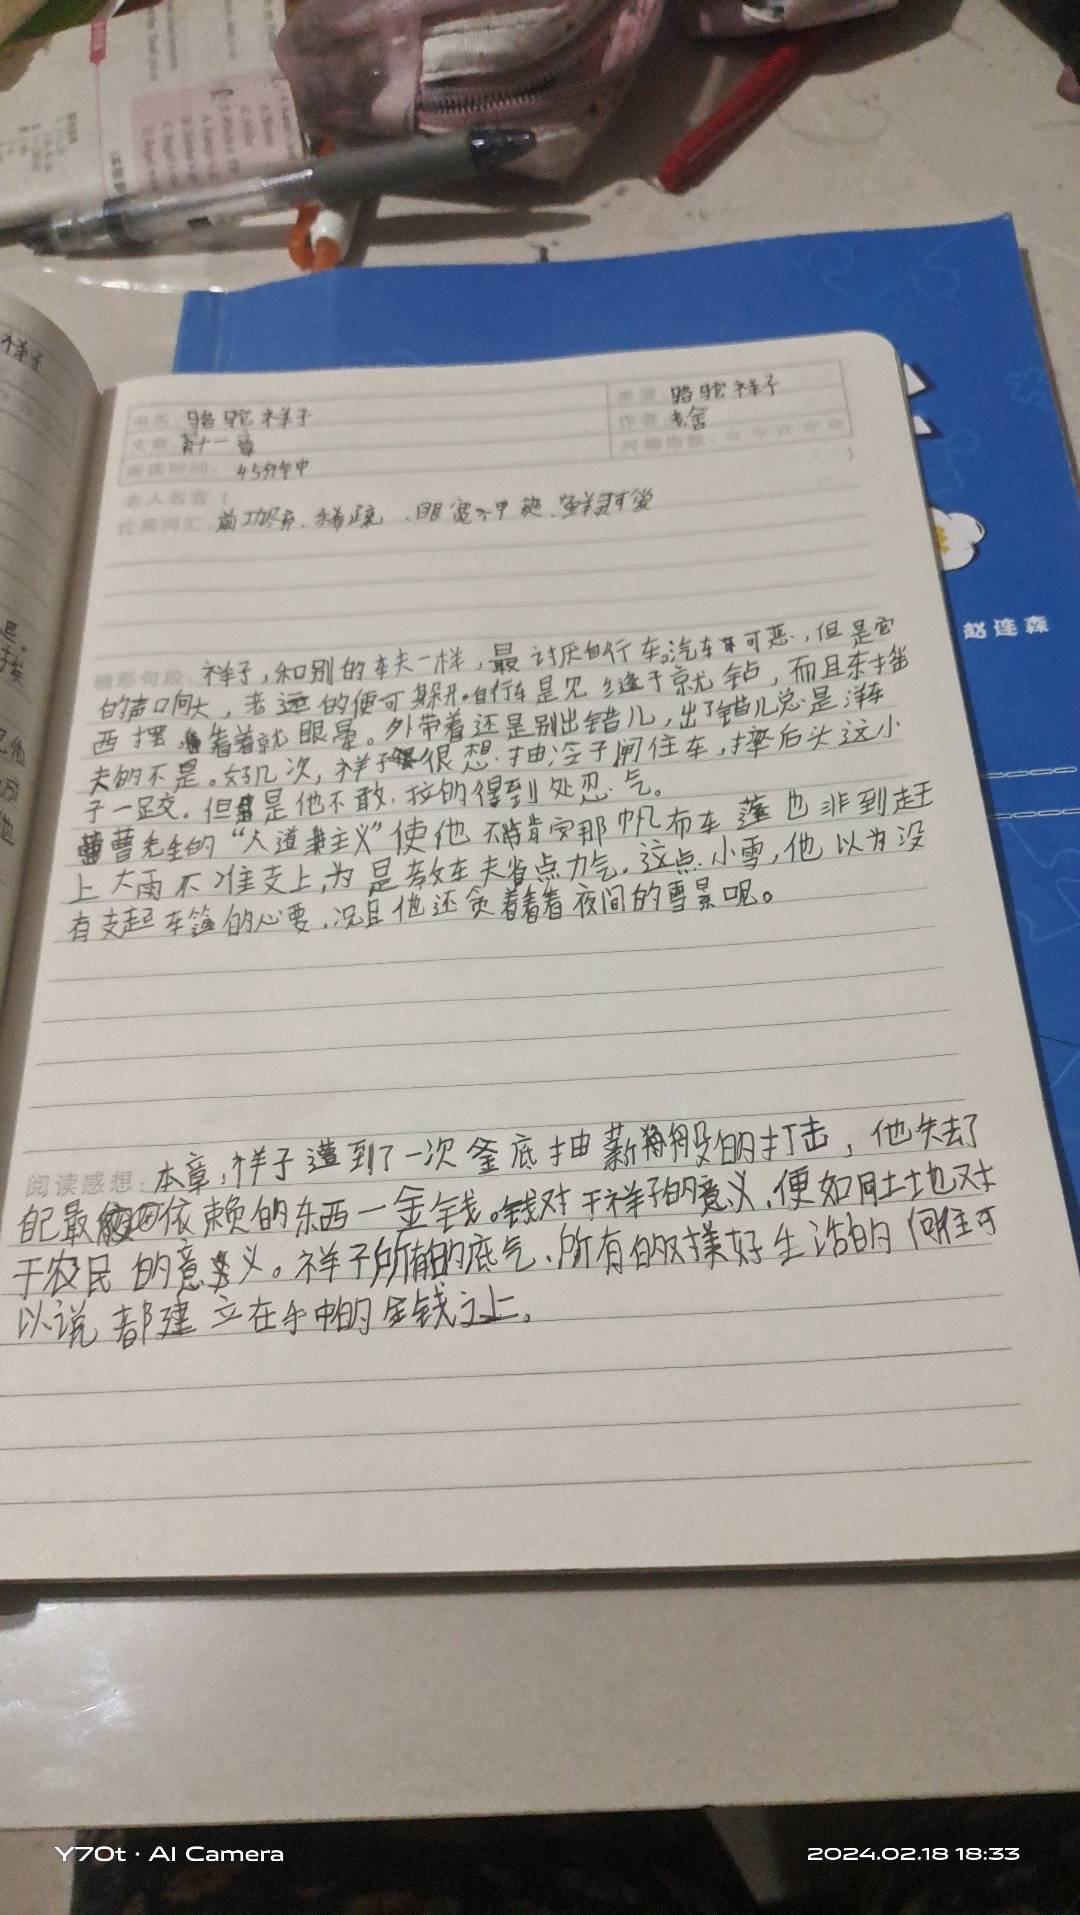 祥子
书名: 骆驼祥子
类别: 骆驼祥子
文章: 第十一章
作者: 老舍
阅读时间: 45分钟
兴趣指数: ☆☆☆☆☆
名人名言 (
)
优美词汇: 前功尽弃、稀疏、眼宽心中爽、鲜灵可爱
精彩句段: 祥子,和别的车夫一样,最讨厌自行车。汽车可恶,但是它
的声口向大,老远的便可躲开。自行车是见缝子就钻,而且东摇
西摆,看着就眼晕。外带着还是别出错儿,出了错儿总是洋车
夫的不是。好几次,祥子很想抽冷子闸住车,摔后头这小
子一跤。但是他不敢,拉的得到处忍气。
曹先生的“人道主义”使他不肯安那帆布车蓬也非到赶
上大雨不准支上,为是教车夫省点力气。这点小雪,他以为没
有支起车篷的必要,况且他还贪着看看夜间的雪景呢。
阅读感想: 本章,祥子遭到了一次釜底抽薪般的打击,他失去了
自己最依赖的东西一金钱。钱对于祥子的意义,便如同土地对
于农民的意义。祥子所有的底气、所有的对美好生活的向往可
以说都建立在手中的金钱之上。
赵连森
Y70t · AI Camera
2024.02.18 18:33